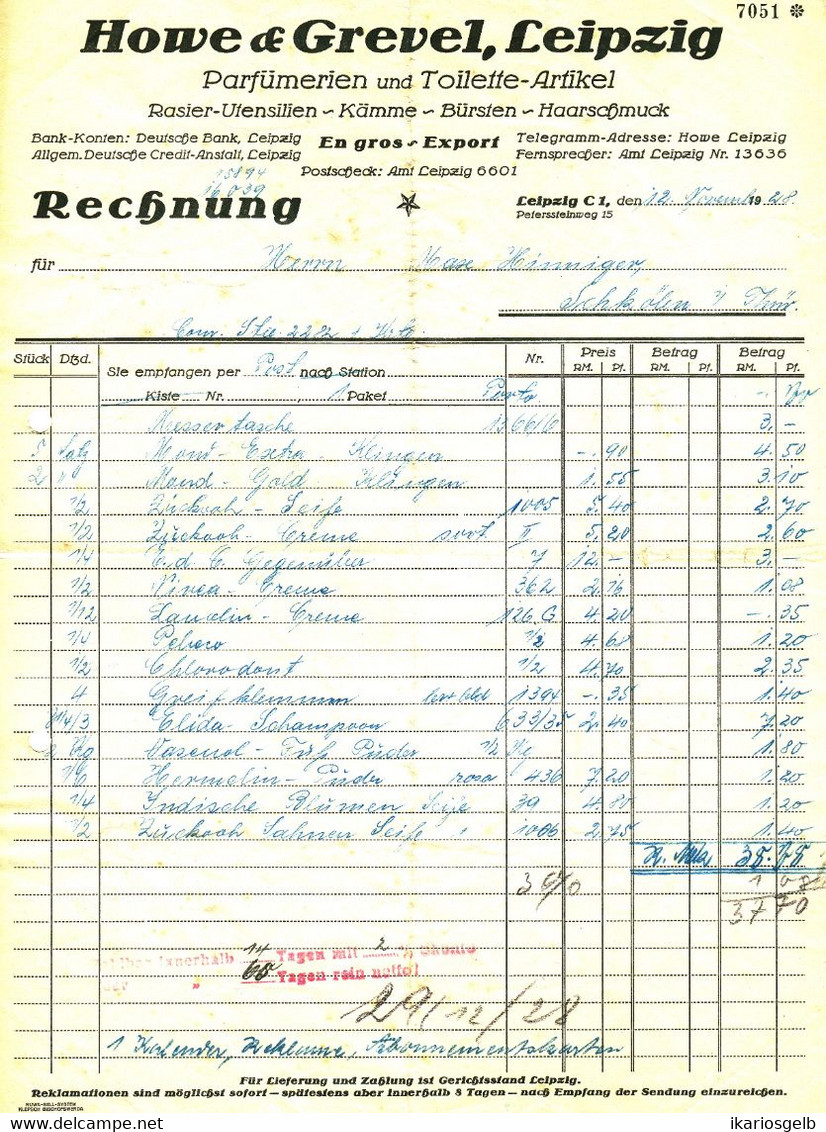 7051 *
Howe & Grevel, Leipzig
Parfümerien und Toilette-Artikel
Rasier-Utensilien ~ Kämme ~ Bürsten ~ Haarschmuck
Bank-Konten: Deutsche Bank, Leipzig
Allgem. Deutsche Credit-Anstalt, Leipzig
En gros ~ Export
Telegramm-Adresse: Howe Leipzig
Fernsprecher: Amt Leipzig Nr. 13636
Postscheck: Amt Leipzig 6601
15894
16039
Rechnung
Leipzig C1, den 12. Novemb 1928.
Peterssteinweg 15
für Herrn Max Hinniger,
Schkölen i/ Thür.
Stück Dtzd. Sie empfangen per Post nach Station Nr. Preis RM. Pf. Betrag RM. Pf. Betrag RM. Pf.
Kiste Nr. , 1 Paket Porto
Messertasche 1366/6 3.-
5 Satz Mond-Extra Klingen -.90 4.50
2 " Mond-Gold Klingen 1.55 3.10
1/2 Zuckooh-Seife 1005 5.40 2.70
1/2 Zuckooh-Creme sort II 5.20 2.60
1/4 E.d.C. Gegenüber 7 12.- 3.-
1/2 Nivea-Creme 362 2.16 1.08
1/12 Lanolin-Creme 126.G 4.20 -.35
1/4 Pebeco 1/2 4.68 1.20
1/2 Chlorodont 1/2 4.70 2.35
4 Greifklemmen 1394 -.35 1.40
1/4/3 Elida-Schampoon 633/35 2.40 7.20
Kg Vasenol-Puder 1/2 Kg 1.80
1/6 Hermelin-Puder rosa 436 7.20 1.20
1/4 Indische Blumen Seife 39 4.80 1.20
1/2 Zuckooh Sahnen Seife 1006 2.75 1.40
3%
37 70
innerhalb 14 Tagen mit 2 % Skonto
" 60 Tagen rein netto!
29/12/28
1 Kalender, Reklame, Abonnementskarten
Für Lieferung und Zahlung ist Gerichtsstand Leipzig.
Reklamationen sind möglichst sofort — spätestens aber innerhalb 8 Tagen — nach Empfang der Sendung einzureichen.
ikariosgelb